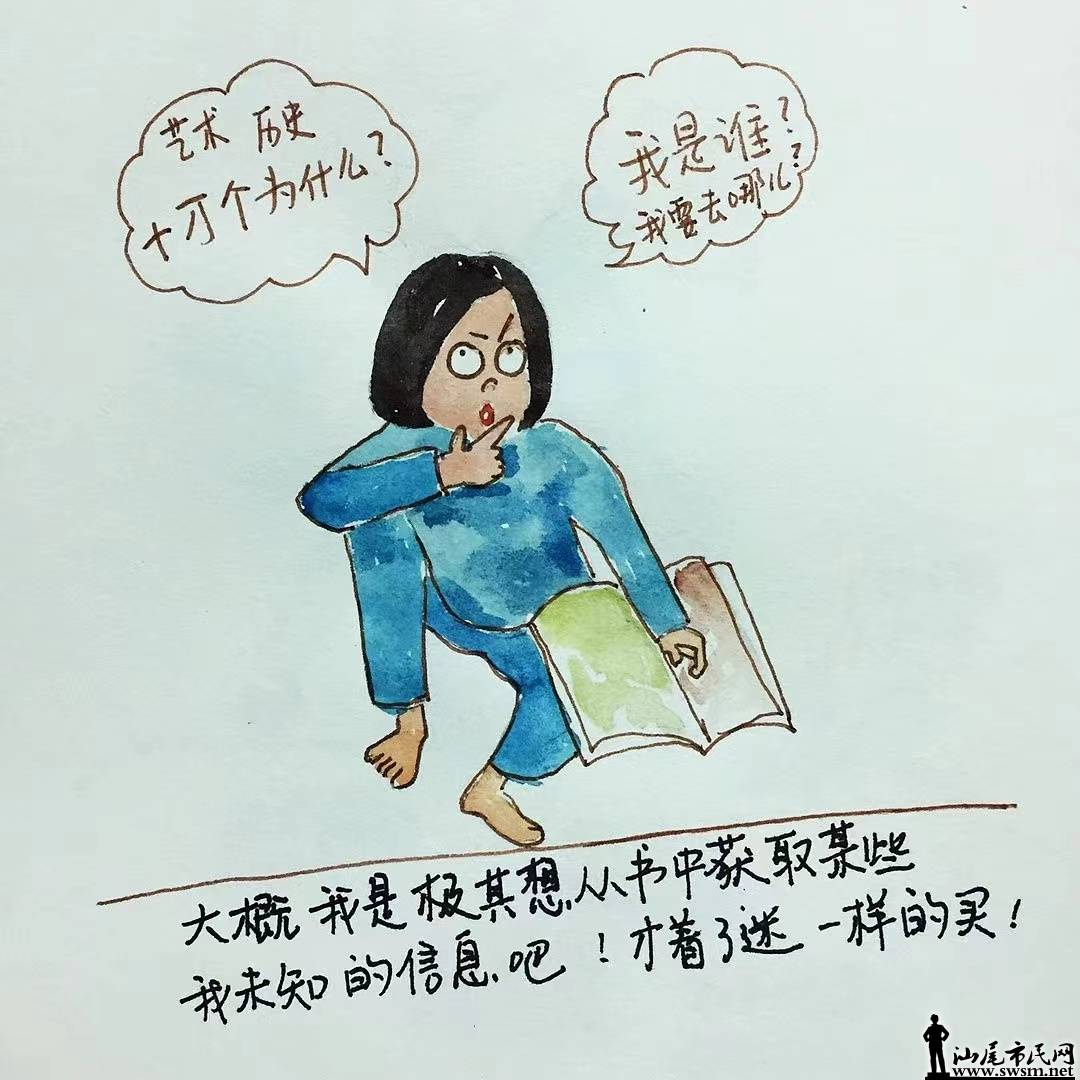 艺术 历史
十万个为什么?
我是谁?
我要去哪儿?
大概我是极其想从书中获取某些
我未知的信息吧!才着了迷一样的买!
汕尾市民网
www.swsm.net